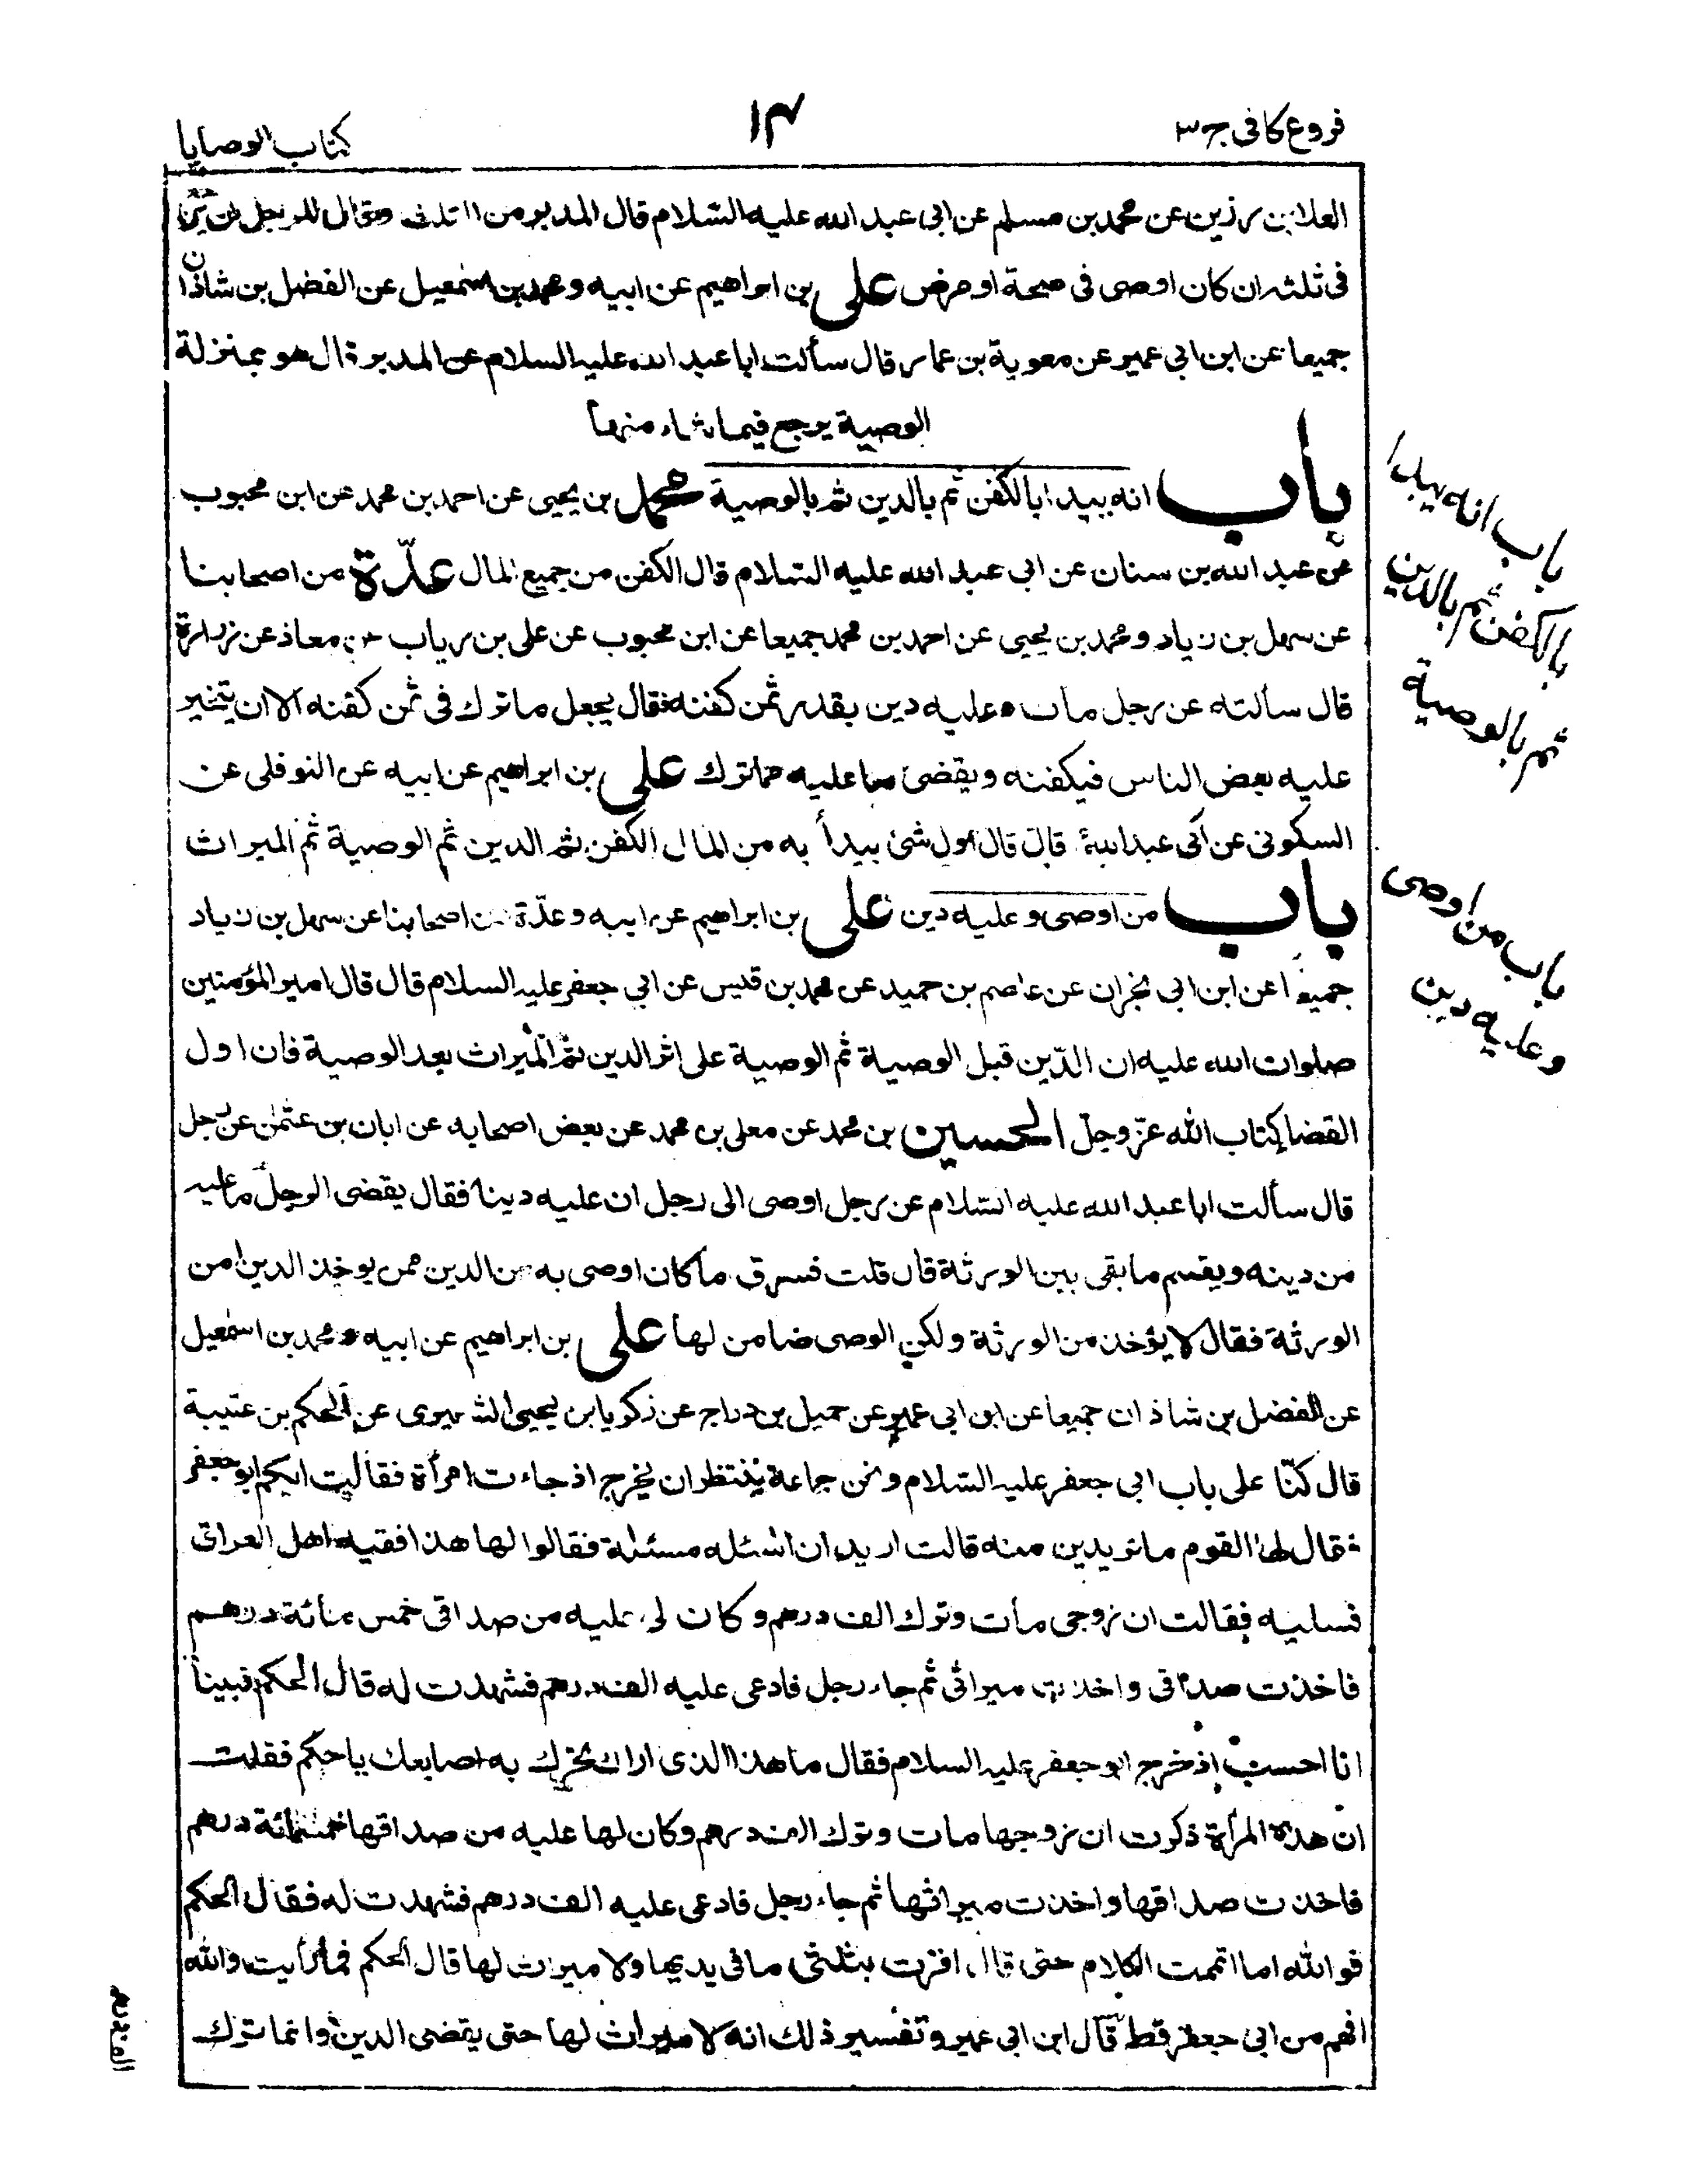 فروع كافى ج ٣
١٣
كتاب الوصايا
العلا بن رزين عن محمد بن مسلم عن ابى عبد الله عليه السلام قال المدبر من الثلث وقال للرجل ان يرجع
فى ثلثه ان كان اوصى فى صحة او مرض على بن ابراهيم عن ابيه ومحمد بن اسمعيل عن الفضل بن شاذان
جميعا عن ابن ابى عمير عن معوية بن عمار قال سألت ابا عبد الله عليه السلام عن المدبر قال هو بمنزلة
الوصية يرجع فيما شاء منها
باب انه يبدا بالكفن ثم بالدين ثم بالوصية محمد بن يحيى عن احمد بن محمد عن ابن محبوب
عن عبد الله بن سنان عن ابى عبد الله عليه السلام قال الكفن من جميع المال عدّة من اصحابنا
عن سهل بن زياد ومحمد بن يحيى عن احمد بن محمد جميعا عن ابن محبوب عن على بن رياب عن معاذ عن زرارة
قال سألته عن رجل مات وعليه دين بقدر ثمن كفنه فقال يجعل ما ترك فى ثمن كفنه الا ان يتجر
عليه بعض الناس فيكفنه ويقضى ما عليه مما ترك على بن ابراهيم عن ابيه عن النوفلى عن
السكونى عن ابى عبد الله ع قال قال اول شئ يبدأ به من المال الكفن ثم الدين ثم الوصية ثم الميراث
باب من اوصى وعليه دين على بن ابراهيم عن ابيه وعدّة من اصحابنا عن سهل بن زياد
جميعا عن ابن ابى نجران عن عاصم بن حميد عن محمد بن قيس عن ابى جعفر عليه السلام قال قال امير المؤمنين
صلوات الله عليه ان الدّين قبل الوصية ثم الوصية على اثر الدين ثم الميراث بعد الوصية فان اول
القضا كتاب الله عزّ وجلّ الحسين بن محمد عن معلى بن محمد عن بعض اصحابه عن ابان بن عثمن عن رجل
قال سألت ابا عبد الله عليه السلام عن رجل اوصى الى رجل ان عليه دينا فقال يقضى الرجل ما عليه
من دينه ويقسم ما بقى بين الورثة قال قلت فسرق ما كان اوصى به من الدين ممن يوخذ الدين امن
الورثة فقال لا يؤخذ من الورثة ولكن الوصى ضامن لها على بن ابراهيم عن ابيه ومحمد بن اسمعيل
عن الفضل بن شاذان جميعا عن ابن ابى عمير عن جميل بن دراج عن زكريا بن يحيى الشعيرى عن الحكم بن عتيبة
قال كنّا على باب ابى جعفر عليه السلام ونحن جماعة ننتظر ان يخرج اذ جاءت امرأة فقالت ايكم ابو جعفر
فقال لها القوم ما تريدين منه قالت اريد ان اسئله مسئلة فقالوا لها هذا فقيه اهل العراق
فسليه فقالت ان زوجى مات وترك الف درهم وكان لى عليه من صداقى خمس مائة درهم
فاخذت صداقى واخذت ميراثى ثم جاء رجل فادعى عليه الف درهم فشهدت له قال الحكم فبينا
انا احسب اذ خرج ابو جعفر عليه السلام فقال ما هذا الذى اراك تحرك به اصابعك يا حكم فقلت
ان هذه المرأة ذكرت ان زوجها مات وترك الف درهم وكان لها عليه من صداقها خمسمائة درهم
فاخذت صداقها واخذت ميراثها ثم جاء رجل فادعى عليه الف درهم فشهدت له فقال الحكم
فو الله ما اتممت الكلام حتى قال اقرت بثلثى ما فى يديها ولا ميراث لها قال الحكم فما رأيت والله
افهم من ابى جعفر قط قال ابن ابى عمير وتفسير ذلك انه لا ميراث لها حتى يقضى الدين وانما ترك
باب انه يبدا
بالكفن ثم بالدين
ثم بالوصية
باب من اوصى
وعليه دين
الف درهم